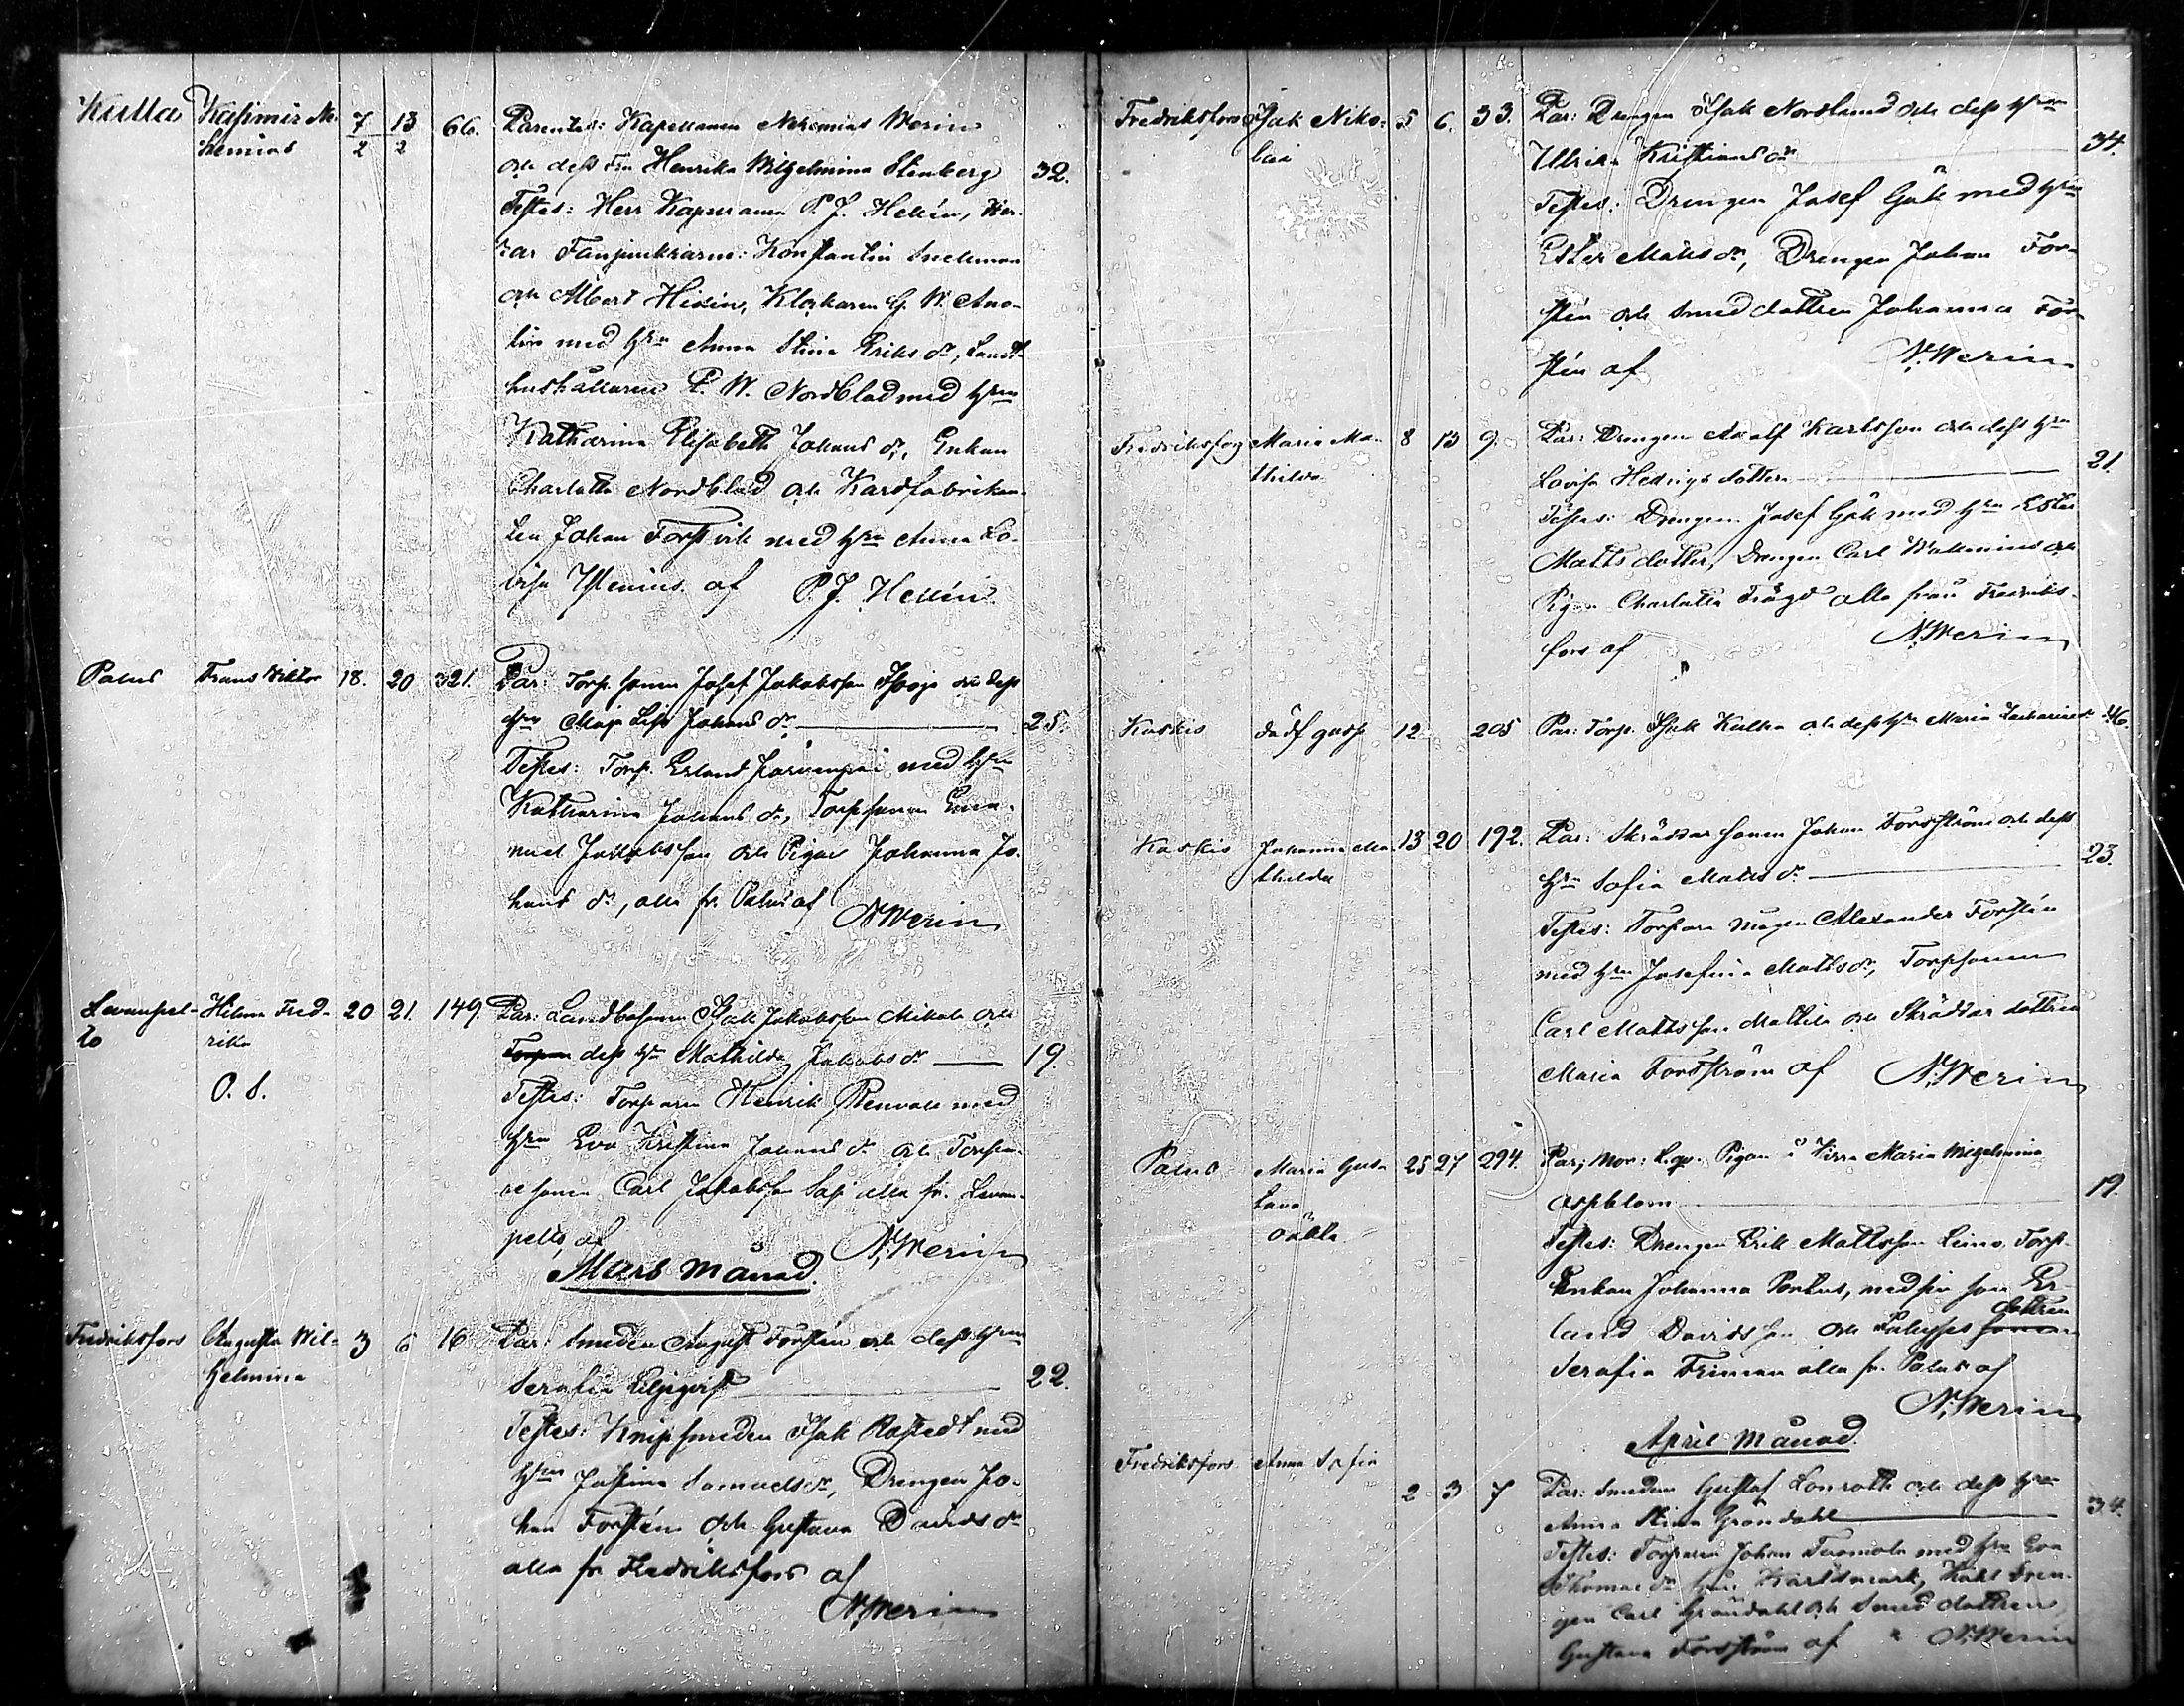 Kulla Kasimir Ne- 7/2 13/2 66. Parentes: Kapellanen Nehemias Werin
hemias och dess Fru Henrika Wilhelmina Stenberg 32.
Testes: Herr Kapellanen P. J. Hellén, Her-
rar Fanjunkrarne: Konstantin Snellman
och Albert Hisin, Klockaren G. W.
med hru Anna Stina Eriks dr,
hushållaren P. W. Nordblad med hru
Katharina Elisabeth Johans dr, Enkan
Charlotta Nordblad och Kardfabrikan-
ten Johan Forsvik med hru Anna Lo-
visa af P. J. Hellén
Palus Frans Viktor 18. 20 321. Par: Torp. sonen Josef Jakobsson och dess
hru Maja Lisa Johans dr 25.
Testes: Torp. Erland med hru
Katharina Johans dr, Torpsonen Ema-
nuel Jakobsson och Pigan Johanna Jo-
hans dr, alla fr. Palus af
N. Werin
Levanpel- Hilma Fred- 20 21. 149. Par: Landbosonen Isak Jakobsson Mikola och
to rika Torparen dess hru Mathilda Jakobs dr 19.
O. S. Testes: Torparen Henrik Renvall med
hru Eva Kristina Johans dr och Torpa-
re sonen Carl Jakobsson alla fr. Levan-
pelto, af N. Werin
Mars månad.
Fredriksfors Augusta Wil- 3 6 16 Par: Smeden August Forstén och dess hru
helmina Serafia Liljeqvist 22.
Testes: Knipsmeden Isak Rostedt med
hru Justina Samuels dr, Drengen Jo-
han Forstén och Gustava Davids dr
alla fr Fredriksfors af
N. Werin
Fredriksfors Isak Niko- 5 6. 33. Par: Drengen Isak Nordlund och dess hru
lai Ullrika Kristians dr 34.
Testes: Drengen Josef Gök med hru
Ester Matts dr, Drengen Johan For-
stén och Smeddottren Johanna For-
stén af N. Werin
Fredriksfors Maria Ma- 8 13 9. Par: Drengen Adolf Karlsson och dess hru
thilda Lovisa Hedvigs dotter 21.
Testes: Drengen Josef Gök med hru Ester
Matts dotter, Drengen Carl Wallenius och
Pigan Charlotta Frögd alla från Fredriks-
fors af N. Werin
Koskis dödf gosse 12 205 Par: Torp. Isak Kulha och dess hru Maria Zacharias dr 46.
Koskis Johanna Ma- 13 20 192. Par: Skräddar sonen Johan Forsström och dess
thilda hru Sofia Matts dr 23.
Testes: Torpare mågen Alexander Forstén
med hru Josefina Matts dr, Torpsonen
Carl Mattsson Mattila och Skräddar dottren
Maria Forsström af N. Werin
Palus Maria Gus- 25 27 294. Par; Mor: L. qv. Pigan i Wirra Maria Wilhelmina
tava Aspblom 19.
oäkta Testes: Drengen Erik Mattsson Leino, Torp-
Enkan Johanna med sin son Er-
land Davidsson och sonen dottren
Serafia Friman alla fr. Palus af
N. Werin
April månad.
Fredriksfors Anna Sofia
2 3 7 Par: Smeden Gustaf Lönroth och dess hru
Anna Stina Gröndahl 34.
Testes: Torparen Johan Tuomola med hru Eva
Thomas dr från Karlsmark, Dren-
gen Carl Gröndahl och Smed dottren
Gustava Forsström af N. Werin